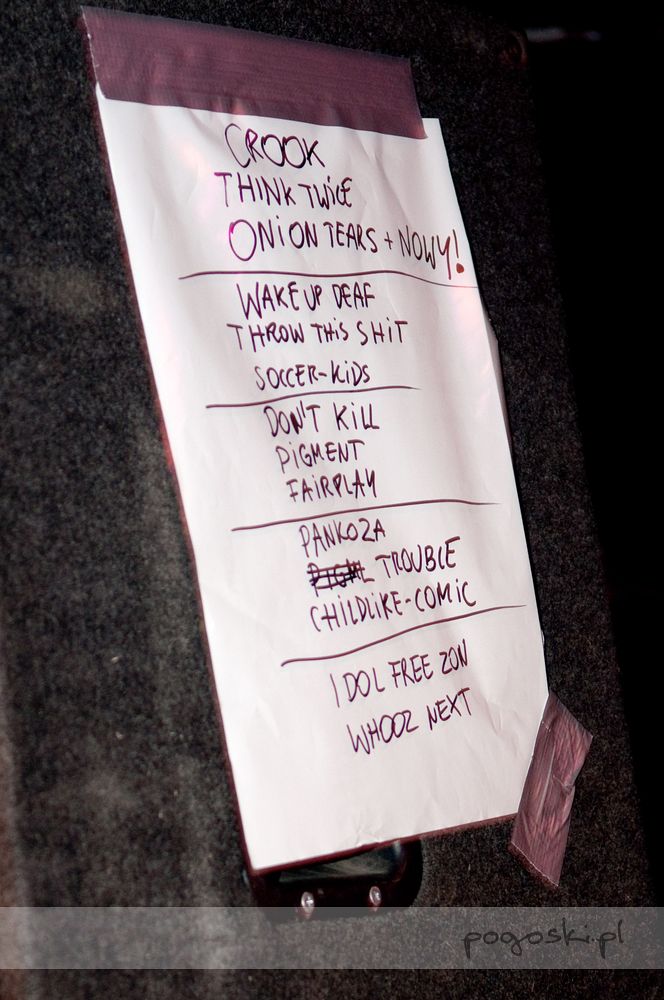 CROOK
THINK TWICE
ONION TEARS + NOWY!
WAKE UP DEAF
THROW THIS SHIT
SOCCER-KIDS
DON'T KILL
PIGMENT
FAIRPLAY
PANKOZA
TROUBLE
CHILDLIKE-COMIC
IDOL FREE ZON
WHOOZ NEXT
pogoski.pl